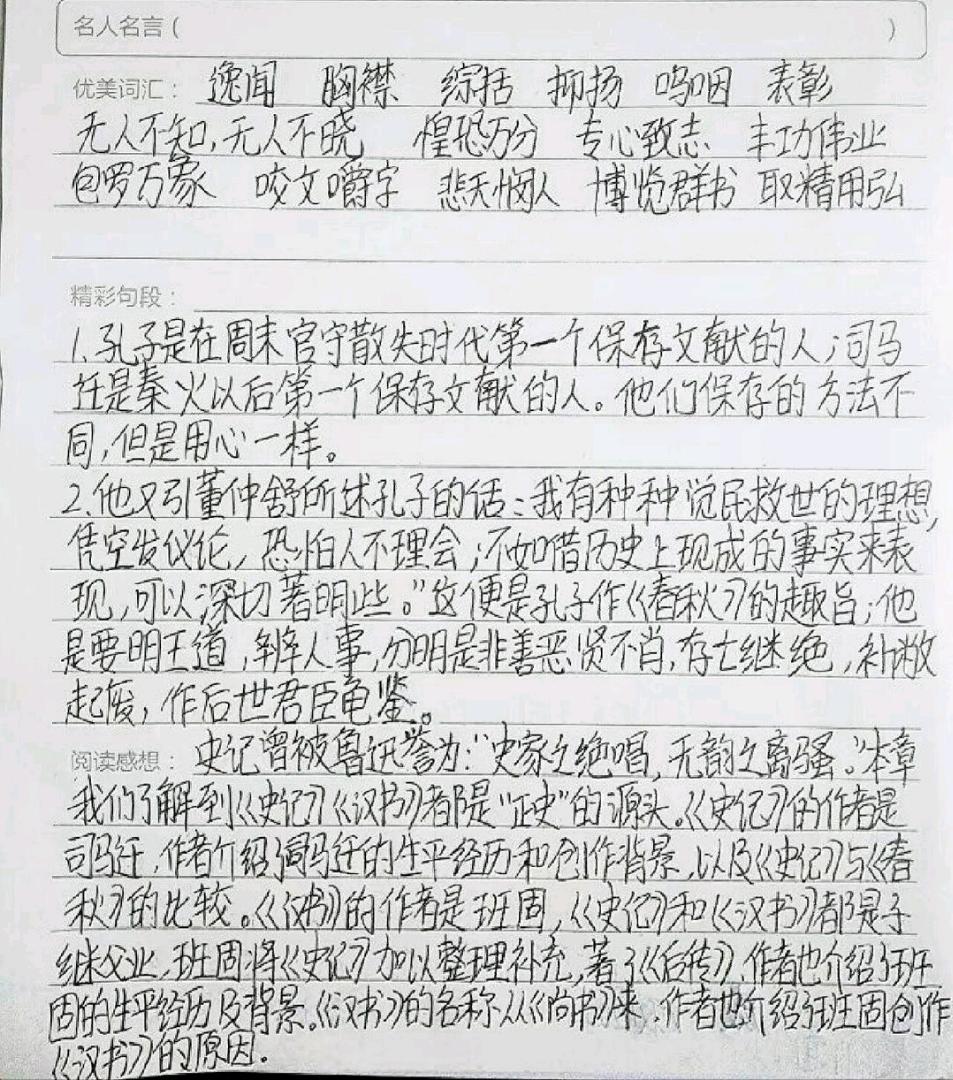 名人名言（ ）
优美词汇： 逸闻 胸襟 综括 抑扬 呜咽 表彰
无人不知,无人不晓 惶恐万分 专心致志 丰功伟业
包罗万象 咬文嚼字 悲天悯人 博览群书 取精用弘
精彩句段：
1.孔子是在周末官守散失时代第一个保存文献的人；司马
迁是秦火以后第一个保存文献的人。他们保存的方法不
同,但是用心一样。
2.他又引董仲舒所述孔子的话：我有种种觉民救世的理想,
凭空发议论，恐怕人不理会；不如借历史上现成的事实来表
现，可以深切著明些。”这便是孔子作《春秋》的趣旨；他
是要明王道,辨人事,分明是非善恶贤不肖,存亡继绝,补敝
起废，作后世君臣龟鉴。
阅读感想： 史记曾被鲁迅誉为:“史家之绝唱,无韵之离骚。”本章
我们了解到《史记》《汉书》都是“正史”的源头。《史记》的作者是
司马迁,作者介绍了司马迁的生平经历和创作背景,以及《史记》与《春
秋》的比较。《汉书》的作者是班固,《史记》和《汉书》都是子
继父业,班固将《史记》加以整理补充,著了《后传》,作者也介绍了班
固的生平经历及背景。《汉书》的名称从《尚书》来,作者也介绍了班固创作
《汉书》的原因.